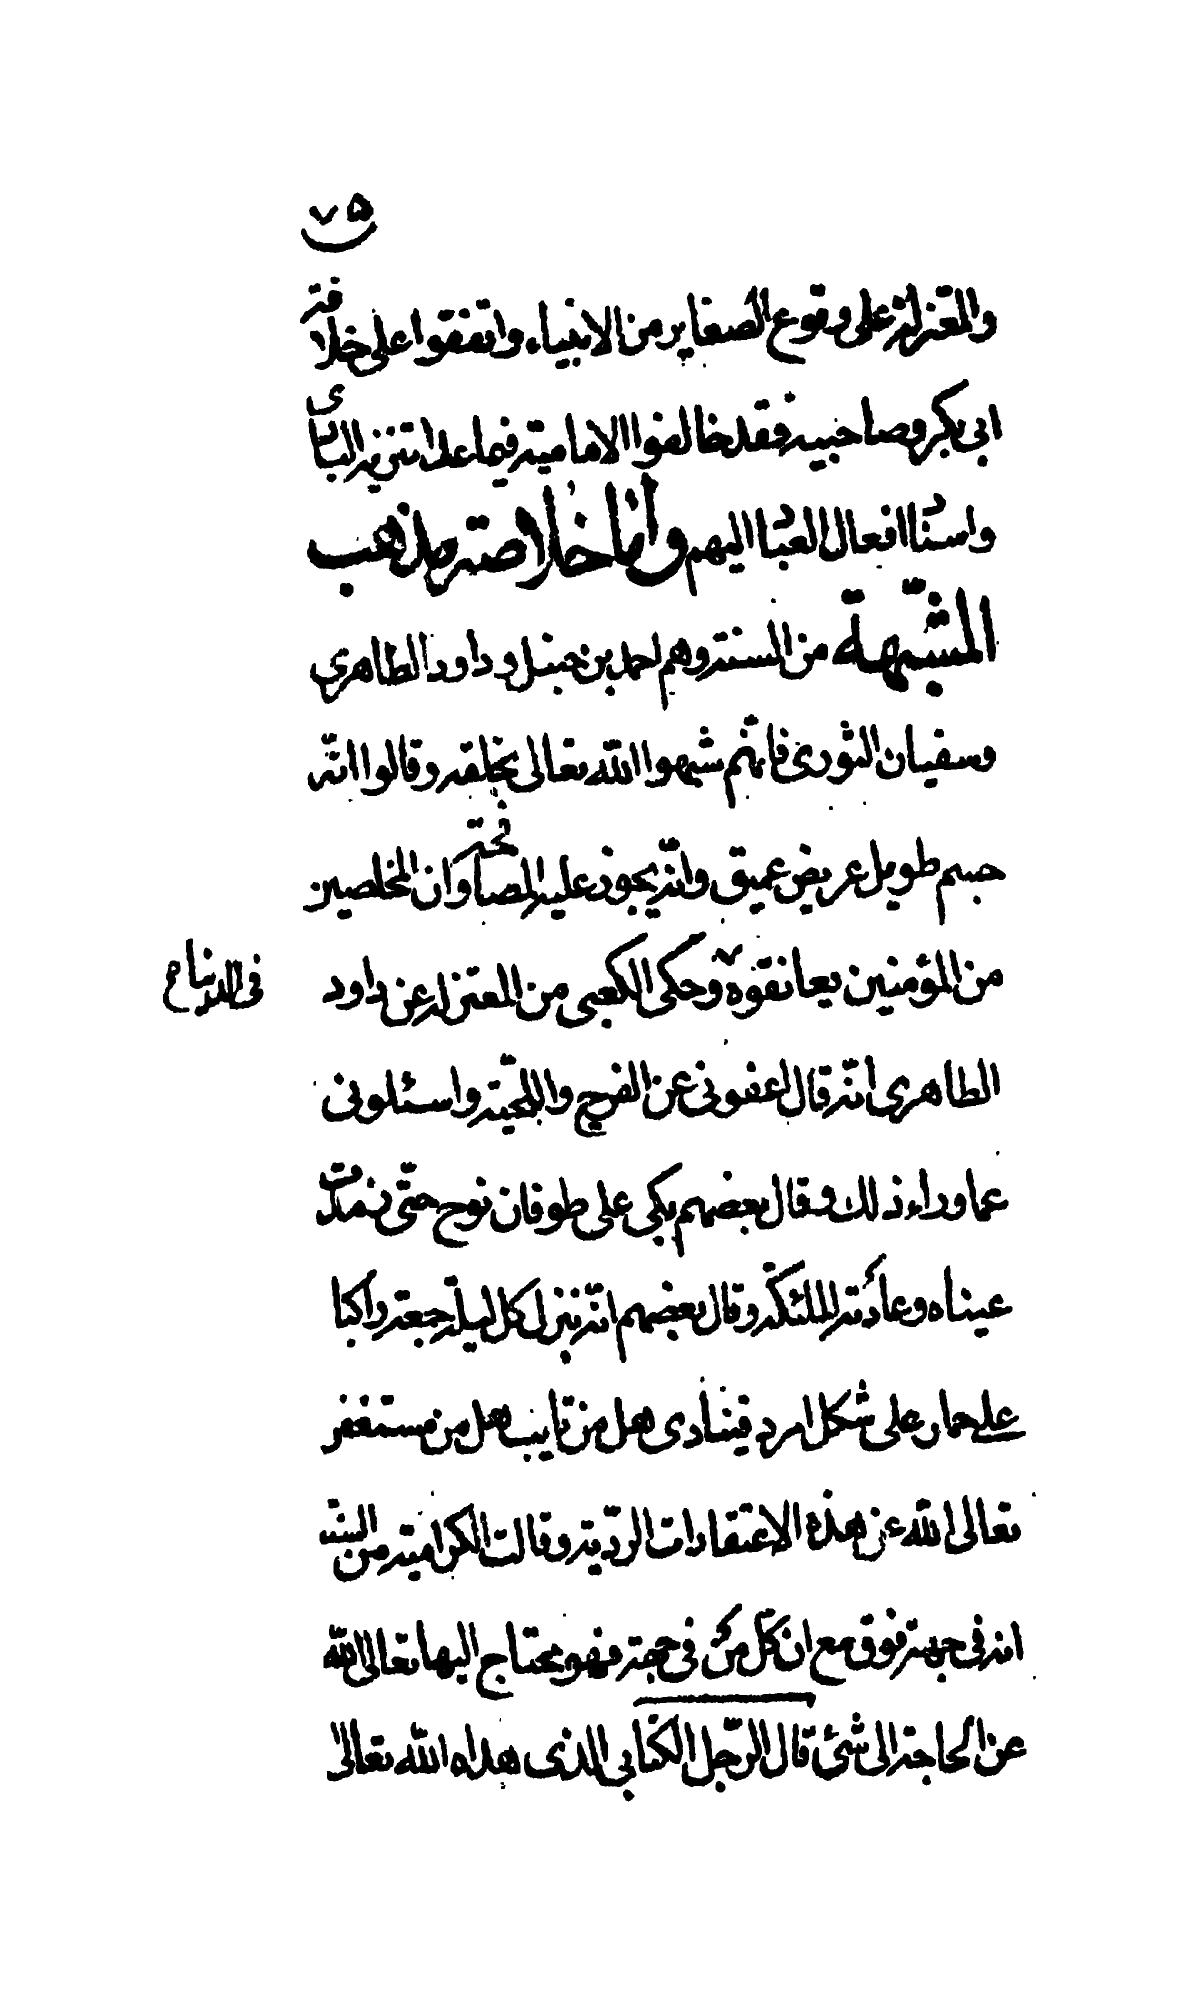 ٧٥
والمعتزلة على وقوع الصغاير من الانبياء واتفقوا على خلافة
ابي بكر وصاحبيه فقد خالفوا الامامية فيما عدا تنزيه الباري
واسناد افعال العباد اليهم وأما خلاصة مذهب
المشبّهة من السنة وهم احمد بن حنبل وداود الظاهري
وسفيان الثوري فانّهم شبهوا اللّه تعالى بخلقه وقالوا انّه
جسم طويل عريض عميق وانّه يجوز عليه المصافحة وان المخلصين
من المؤمنين يعانقوه وحكى الكعبي من المعتزلة عن داود
في الدنيا
الظاهري انّه قال اعفوني عن الفرج واللحية واسئلوني
عما وراء ذلك وقال بعضهم بكى على طوفان نوح حتّى رمدت
عيناه وعادته الملئكة وقال بعضهم انّه ينزل كل ليلة جمعة راكبا
على حمار على شكل امرد فينادى هل من تايب هل من مستغفر
تعالى اللّه عن هذه الاعتقادات الرديّة وقالت الكرامية من السنة
انه في جهة فوق مع ان كلّ من في جهة فهو محتاج اليها تعالى اللّه
عن الحاجة الى شئ قال الرّجل الكتابي الذي هداه اللّه تعالى